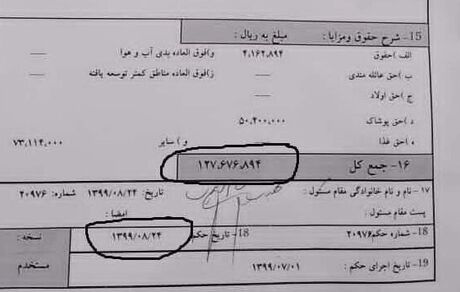 15- شرح حقوق ومزایا : مبلغ به ریال :
الف )حقوق ۴,۱۶۲,۸۹۴ و)فوق العاده بدی آب و هوا ——
ب )حق عائله مندی —— ز)فوق العاده مناطق کمتر توسعه یافته ——
ج )حق اولاد ——
د)حق پوشاک ۵۰,۴۰۰,۰۰۰
ه )حق غذا —— و) سایر ۷۳,۱۱۴,۰۰۰
۱۶- جمع کل ۱۲۷,۶۷۶,۸۹۴
۱۷- نام و نام خانوادگی مقام مسئول : تاریخ: ۱۳۹۹/۰۸/۲۴ شماره: ۲۰۹۷۶
پست مقام مسئول : امضا :
18- شماره حکم ۲۰۹۷۶ 18- تاریخ حکم ۱۳۹۹/۰۸/۲۴ نسخه :
19- تاریخ اجرای حکم : ۱۳۹۹/۰۷/۰۱ مستخدم